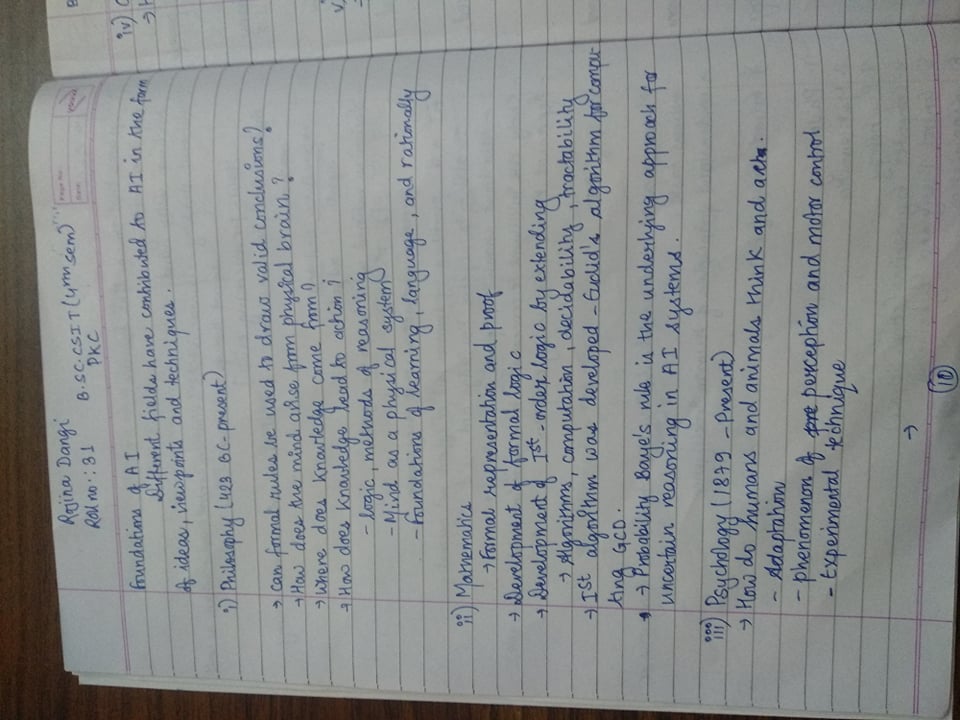 Rojina Dangi
Roll no.: 31
B.SC.CSIT (4rth sem)
PKC
Page No.
Date
Foundations of AI
Different fields have contributed to AI in the form
of ideas, viewpoints and techniques.
i) Philosophy (423 BC-present)
→ Can formal rules be used to draw valid conclusions?
→ How does the mind arise from physical brain?
→ Where does knowledge come from?
→ How does knowledge lead to action?
- logic, methods of reasoning
- Mind as a physical system
- Foundations of learning, language, and rationally
ii) Mathematics
→ Formal representation and proof
→ Development of formal logic
→ Development of Ist-order logic by extending
→ Algorithms, computation, decidability, tractability
→ Ist algorithm was developed - Euclid's algorithm for compu-
ting GCD.
→ Probability Baye's rule is the underlying approach for
uncertain reasoning in AI systems.
iii) Psychology (1879 - Present)
→ How do humans and animals think and act.
- Adaptation
- phenomenon of perception and motor control
- Experimental technique
→
10
iv)
→
v)